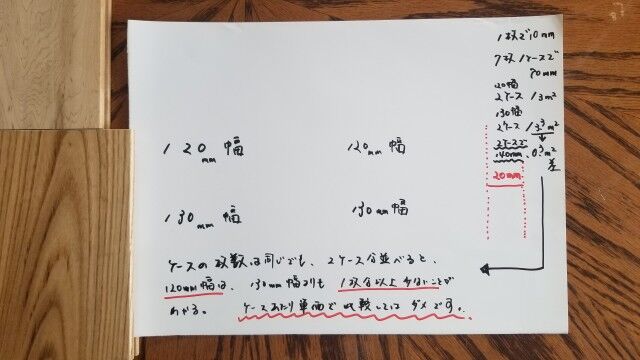 120mm幅
120mm幅
130mm幅
130mm幅
ケースの枚数は同じでも、2ケース分並べると、
120mm幅は、130mm幅よりも1枚分以上少ないことが
わかる。ケースあたり単価で比較してはダメです。
1枚で10mm
7枚1ケースで
70mm
120幅
2ケース 13m²
130幅
2ケース
2ケースで
140mm
差
20mm